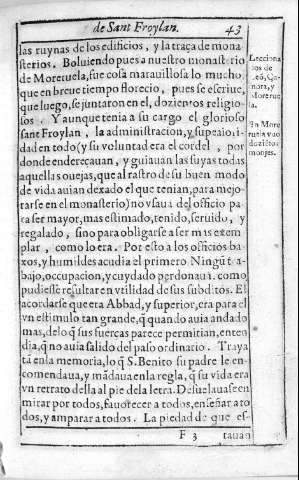 de Sant Froylan. 43
las ruynas de los edificios, y la traça de mona
sterios. Boluiendo pues a nuestro monasterio
de Moreruela, fue cosa marauillosa lo mucho,
que en breue tiempo florecio, pues se escriue,
que luego, se juntaron en el, dozientos religio-
sos. Y aunque tenia a su cargo el glorioso
sant Froylan, la administracion, y superiorit-
dad en todo (y su voluntad era el cordel, por
donde endereçauan, y guiauan las suyas todas
aquellas ouejas, que al rastro de su buen modo
de vida auian dexado el que tenian, para mejo-
rarse en el monasterio) no vsaua del officio pa
ra ser mayor, mas estimado, tenido, seruido, y
regalado, sino para obligarse a ser mas exem
plar, como lo era. Por esto a los officios ba-
xos, y humildes acudia el primero. Ningũ tra-
bajo, occupacion, y cuydado perdonaua, como
pudiesse resultar en vtilidad de sus subditos. El
acordarse que era Abbad, y superior, era para el
vn estimulo tan grande, q̃ quando auia andado
mas, de lo q̃ sus fuerças parece permitian, enten
dia, q̃ no auia salido del passo ordinario. Traya
tã en la memoria, lo q̃ S. Benito su padre le en-
comendaua, y mãdaua en la regla, q̃ su vida era
vn retrato della al pie de la letra. Desuelauase en
mirar por todos, fauorecer a todos, enseñar a to
dos, y amparar a todos. La piedad de que es-
F 3 tauan
Lecciona
rios de
Leõ, Ça-
mora, y
Moreruela
la.
En More
ruela vuo
doziẽtos
monjes.